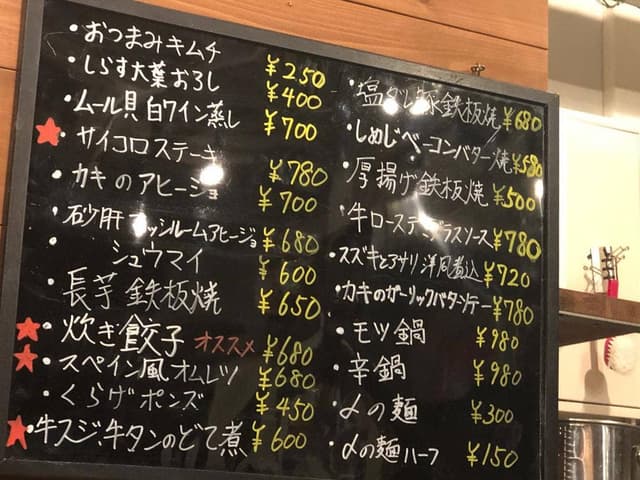 ・おつまみキムチ ¥250
・しらす大葉おろし ¥400
・ムール貝 白ワイン蒸し ¥700
・サイコロステーキ ¥780
・カキのアヒージョ ¥700
・砂肝マッシルームアヒージョ ¥680
・シュウマイ ¥600
・長芋 鉄板焼 ¥650
・炊き餃子 オススメ ¥680
・スペイン風オムレツ ¥680
・くらげポンズ ¥450
・牛スジ・牛タンのどて煮 ¥600
・塩ダレ豚鉄板焼 ¥680
・しめじベーコンバター焼 ¥580
・厚揚げ鉄板焼 ¥500
・牛ロースデミグラスソース ¥780
・スズキとアサリ 洋風煮込 ¥720
・カキのガーリックバターソテー ¥780
・モツ鍋 ¥980
・辛鍋 ¥980
・〆の麺 ¥300
・〆の麺ハーフ ¥150